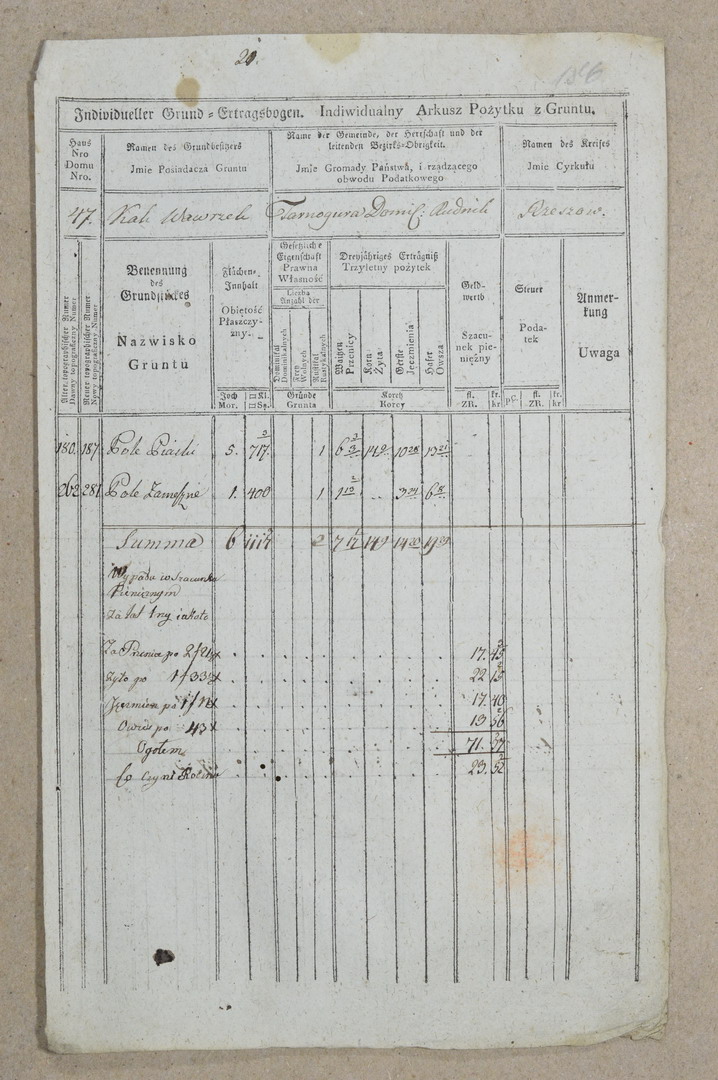 20.
186
Individueller Grund = Ertragsbogen. Indiwidualny Arkusz Pożytku z Gruntu.
Haus Nro Domu Nro.
Namen des Grundbesitzers
Jmie Posiadacza Gruntu
Name der Gemeinde, der Herrschaft und der
leitenden Bezirks-Obrigkeit.
Jmie Gromady Państwa, i rządzącego
obwodu Podatkowego
Namen des Kreises
Jmie Cyrkułu
47. Kak Wawrzek Tarnogura Domi: Rudnik Rzeszow.
Alter topographischer Numer
Dawny topograficzny Numer
Neuer topographischer Numer
Nowy topograficzny Numer
Benennung
des
Grundstückes
Nazwisko
Gruntu
Flächen-
Innhalt
Obiętość
Płaszczy-
zny.
Joch □Kl.
Mor. □Są.
Gesetzliche
Eigenschaft
Prawna
Własność
Liczba
Anzahl der
Dominikal
Dominikalnych
Frey
Wolnych
Rustikal
Rustykalnych
Gründe
Grunta
Dreyjähriges Erträgniß
Trzyletny pożytek
Waitzen
Przenicy
Korn
Żyta
Gerste
Jęczmienia
Hafer
Owsza
Koretz
Korcy
Geld-
werth
Szacu-
nek pie-
niężny
fl. kr.
ZR. kr
Steuer
Poda-
tek
pC. fl. kr.
ZR. kr
Anmer-
kung
Uwaga
180. 187 Pole Piaski 5. 717 1
262 281 Pole Zamesznie 1. 400 1
Summa 6 1117 2
Wypada w szacunku
Pienieznym
za lat 3ny iakoto
Za Przenice po
Zyto po 22 15
Jęczmien po 17. 40
Owies po 43 x 13. 56
Ogołem 71.
Co Czyni Rocznie 23. 52